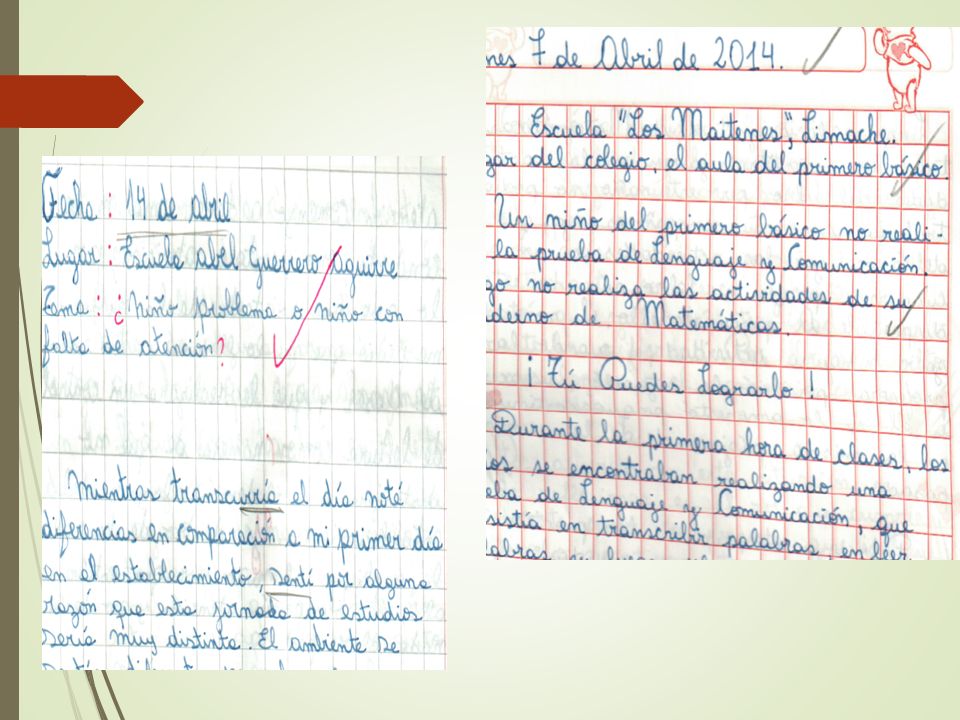 Fecha : 14 de abril
Lugar : Escuela abel Guerrero aguirre
Tema : ¿ Niño problema o niño con
falta de atención?
Mientras transcurría el día noté
diferencias en comparación a mi primer día
en el establecimiento, sentí por alguna
razón que esta jornada de estudios
sería muy distinta. El ambiente se
nes 7 de Abril de 2014.
Escuela "Los Maitenes", Limache.
gar del colegio, el aula del primero básico.
Un niño del primero básico no reali-
la prueba de Lenguaje y Comunicación.
go no realiza las actividades de su
derno de Matemáticas.
¡ Tú Puedes Lograrlo !
Durante la primera hora de clases, los
os se encontraban realizando una
eba de Lenguaje y Comunicación, que
sistía en transcribir palabras, en leer